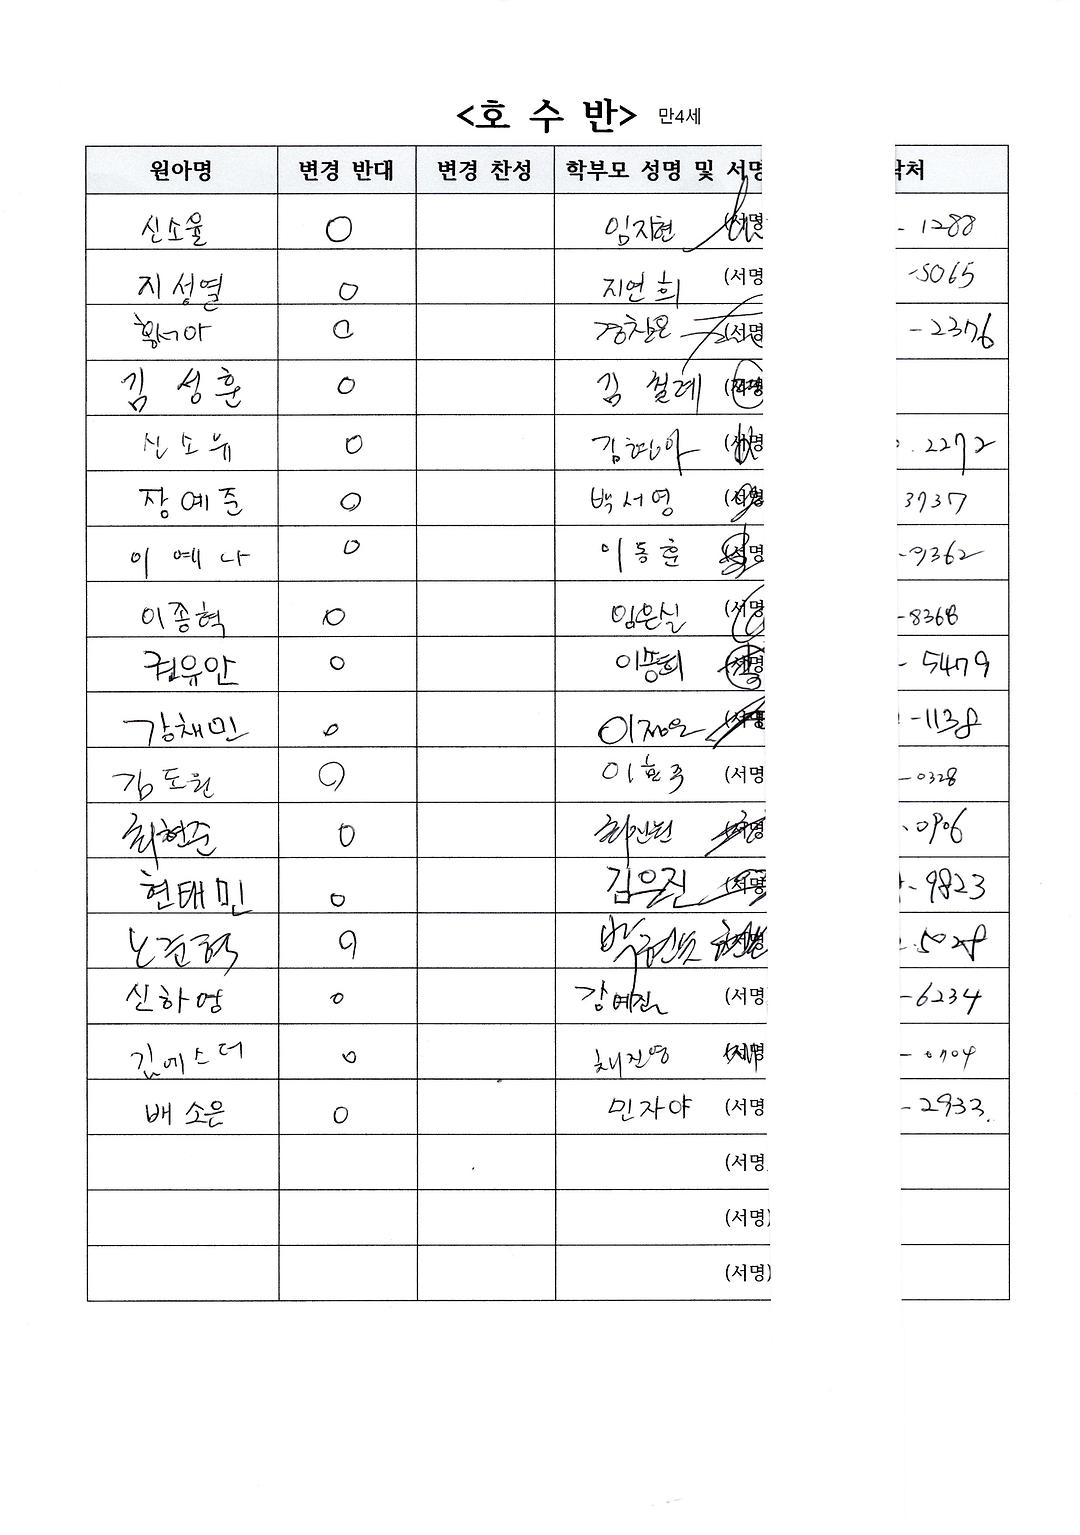 <호 수 반> 만4세
원아명 변경 반대 변경 찬성 학부모 성명 및 서명 락처
신소율 O 임지현 (서명 - 1288
지성열 O 지연희 (서명 -5065
황서아 O 경참온 (서명 - 2376
김 성훈 O 김 철례 (서명
신소유 O 김현아 (서명 . 2272
장예준 O 박서영 (서명 3737
이 예나 O 이동훈 (서명 -9362
이종혁 O 임은실 (서명 -8368
권유안 O 이송희 (서명 - 5479
강채민 O 이정은 (서명 -1138
김도원 O 이효주 (서명 -0328
최현준 O (서명 .0906
현태민 O 김은진 (서명 - 9823
노준혁 O (서명 .5028
신하영 O 강예진 (서명 -6234
김에스더 O 채진영 (서명 - 0704
배소은 O 민자야 (서명 - 2933.
(서명
(서명)
(서명)